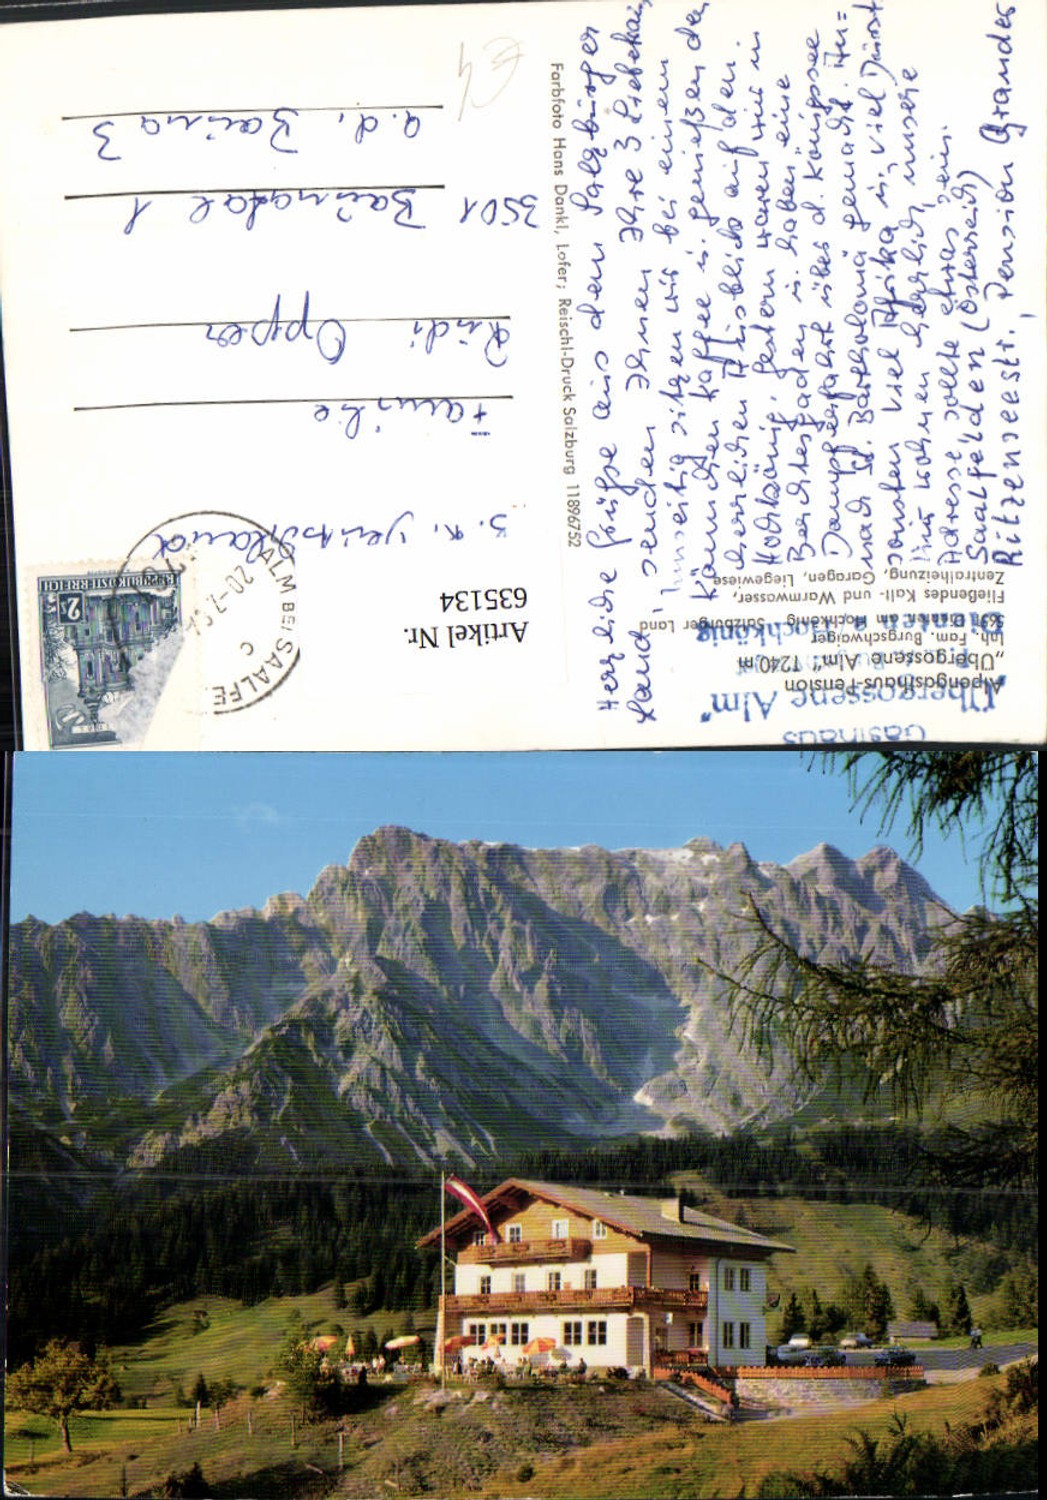 Alpengasthaus-Pension
„Übergossene Alm“ 1240 m
Inh. Fam. Burgschwaiger
5651 Dienten am Hochkönig Salzburger Land
Fließendes Kalt- und Warmwasser,
Zentralheizung, Garagen, Liegewiese
Gasthaus
"Übergossene Alm"
Dienten a. Hochkönig
Herzliche Grüße aus dem Salzburger
Land, senden Ihnen Ihre 3 Liebekais
sitzen wir bei einem
Kännchen Kaffee u. genießen den
herrlichen Ausblick auf den
Hochkönig. Gestern waren wir in
Berchtesgaden u. haben eine
Dampferfahrt über d. Königssee
nach St. Bartholomä gemacht. An=
sonsten viel Afrika u. viel Durst
Wir wohnen herrlich, unsere
Adresse sollte etwas sein.
Saalfelden (Österreich)
Ritzenseestr., Pension Gramler
Farbfoto Hans Dankl, Lofer; Reischl-Druck Salzburg 11896752
REPUBLIK ÖSTERREICH
2 S
ALM BEI SAALFE
20.-7.
c
Artikel Nr.
635134
Familie
Rudi Opper
3501 Baunatal 1
a.d. Bauna 3
€4